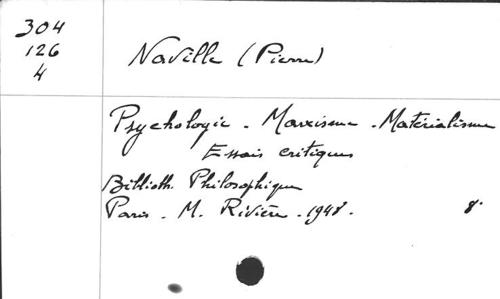 304
126
4
Naville (Pierre)
Psychologie - Marxisme - Matérialisme
Essais critiques
Biblioth. Philosophique
Paris - M. Rivière - 1948. 8°